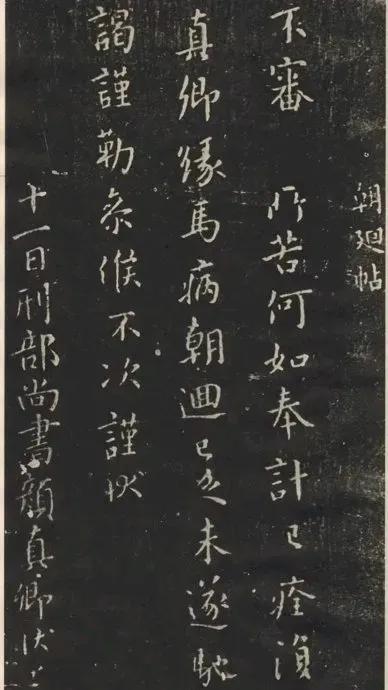 朝廻帖
不審 所苦何如奉計已痊損
真卿緣馬病朝迴已遲未遂馳
謁謹勒參候不次謹狀
十一日刑部尚書顏真卿狀上